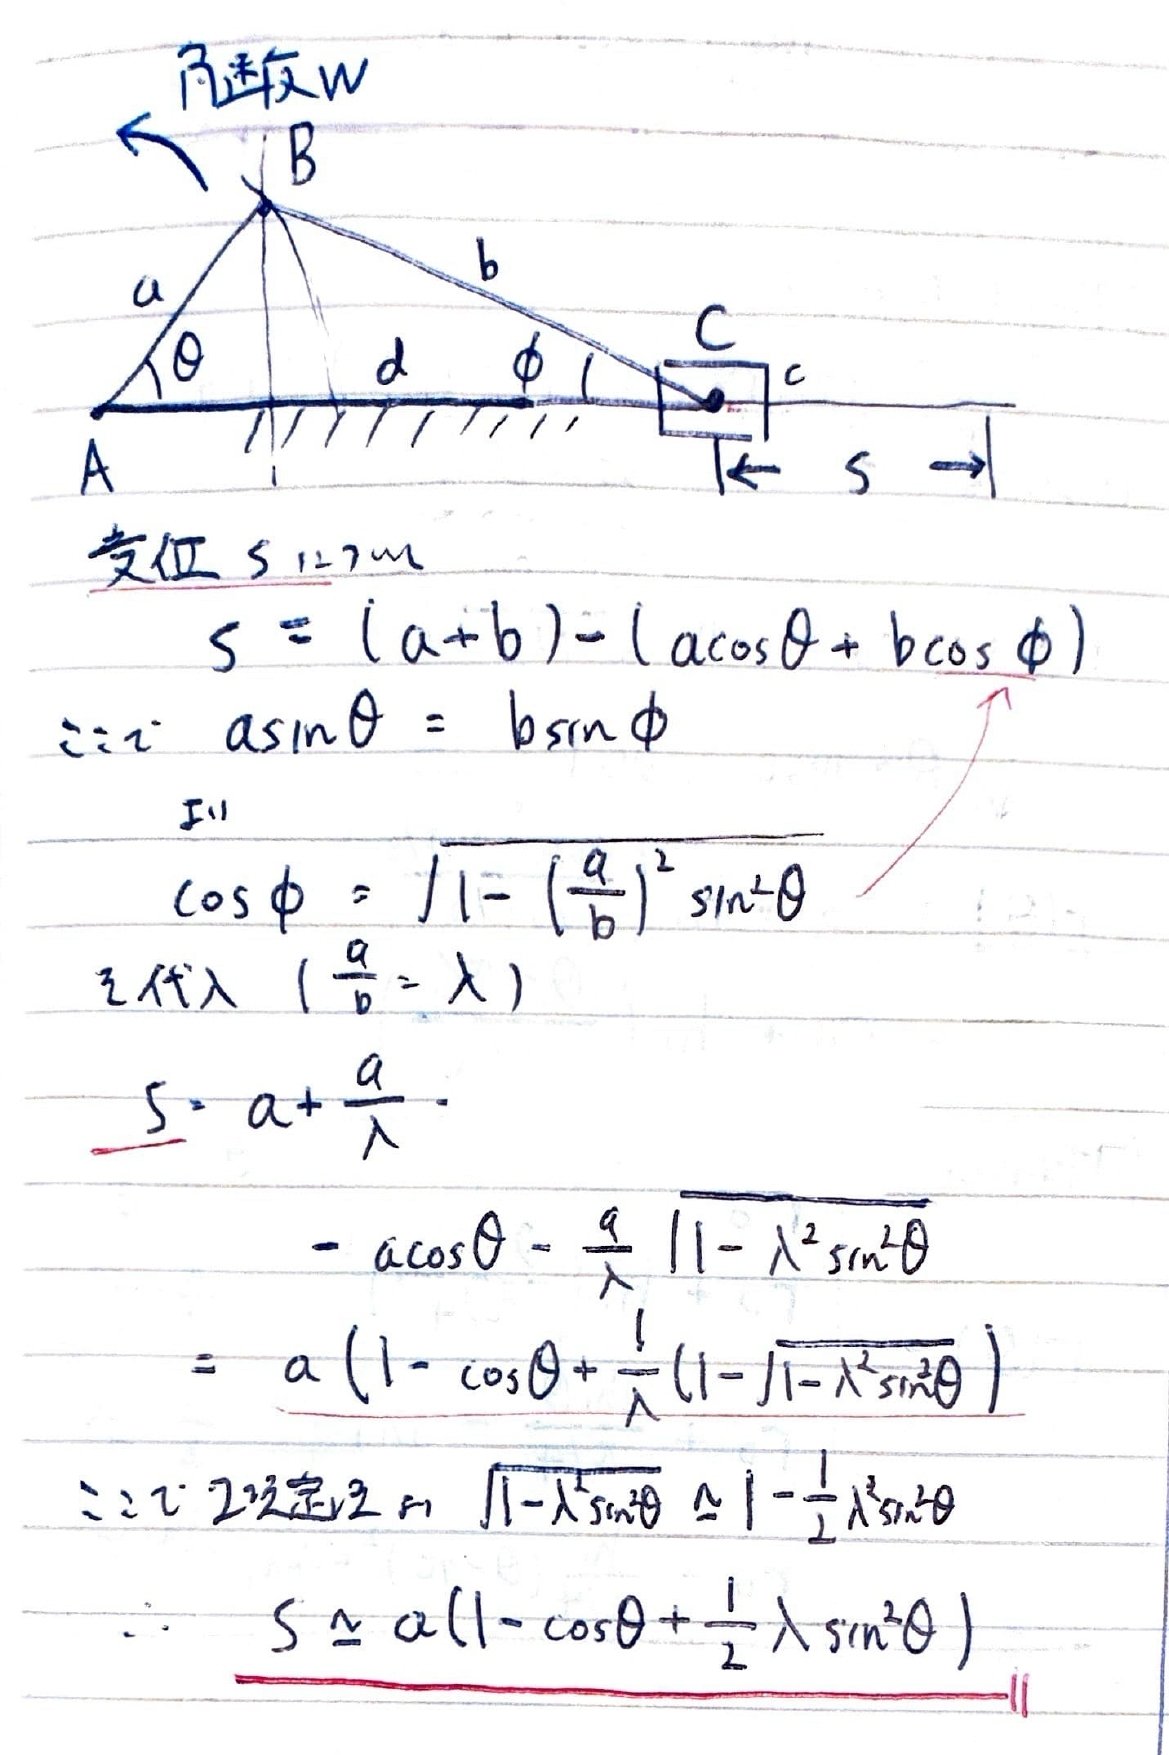 角速度 W
B
a
b
θ
d
φ
C
c
A
S
変位 S について
S = (a+b)-(acosθ + bcos φ)
ここで asinθ = bsinφ
より
cosφ = √1-(a/b)² sin²θ
を代入 (a/b = λ)
S = a + a/λ
- acosθ - a/λ √1-λ²sin²θ
= a(1-cosθ + 1/λ(1-√1-λ²sin²θ)
ここで 2項定理より √1-λ²sin²θ ≃ 1-1/2λ²sin²θ
∴ S ≃ a(1-cosθ + 1/2 λ sin²θ)